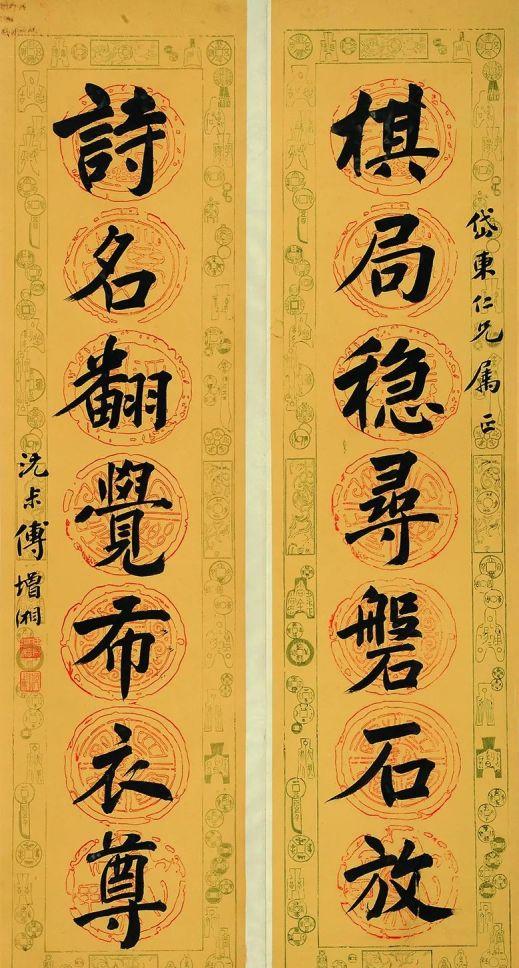 岱東仁兄属正
棋局穩尋磐石放
詩名翻覺布衣尊
沅尗傅增湘